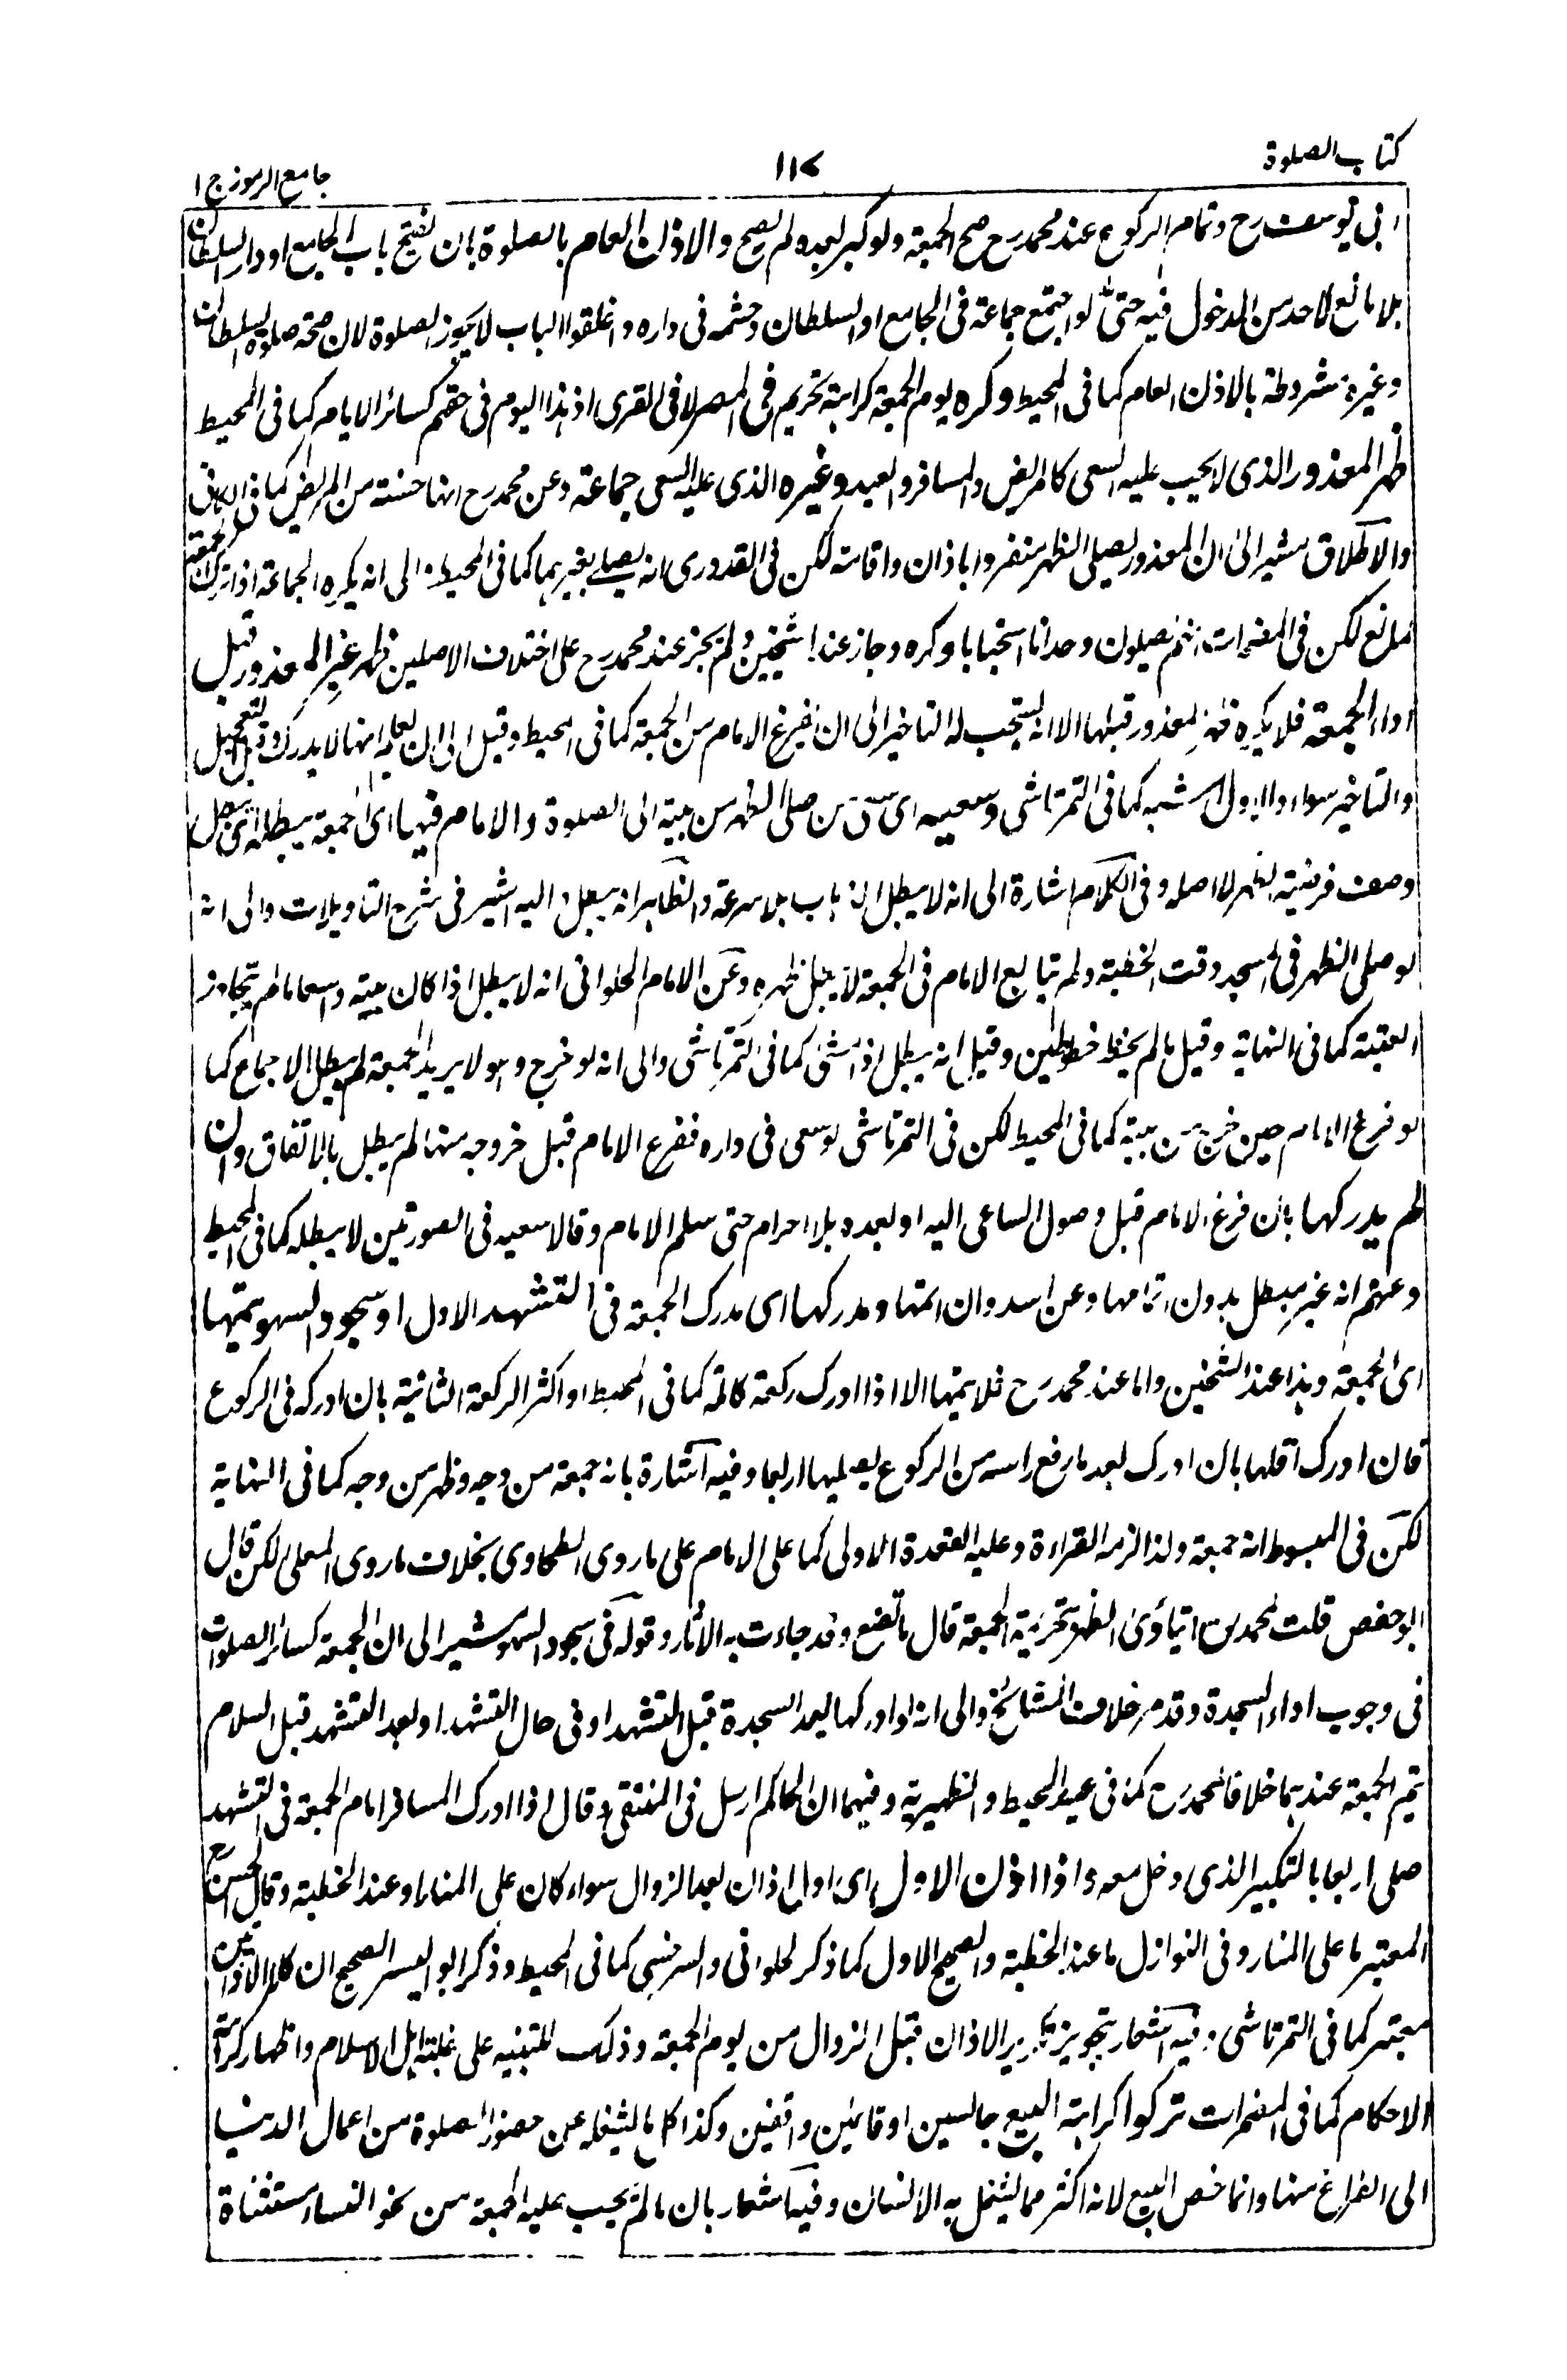 كتاب الصلوة
١١٧
جامع الرموز ج ١
ابى يوسف رح وتمام الركوع عند محمد رح صح الجمعة ولو كبر بعده لم يصح والاذن العام بالصلوة بان يفتح باب الجامع او دار السلطان
بلا مانع لاحد من الدخول فيه حتى لو اجتمع جماعة فى الجامع او السلطان وحشمه فى داره واغلقوا الباب لا يجوز الصلوة لان صحة صلوة السلطان
وغيره مشروطة بالاذن العام كما فى المحيط وكره يوم الجمعة كراهة تحريم فى المصر لا فى القرى اذ هذا اليوم فى حقهم كسائر الايام كما فى المحيط
ظهر المعذور الذى لا يجب عليه السعى كالمريض والمسافر والعبد وغيره الذى عليه السعى جماعة وعن محمد رح انها حسنة من المريض كما فى الكافى
والاطلاق مشير الى ان المعذور يصلى الظهر منفردا باذان واقامة لكن فى القدورى انه يصلى بغيرهما كما فى المحيط والى انه يكره الجماعة اذا تركت الجمعة
لمانع لكن فى المضمرات انهم يصلون وحدانا استحبابا وكره وجاز عند الشيخين ولم يجز عند محمد رح على اختلاف الاصلين ظهر غير المعذور قبل
اداء الجمعة فلا يكره ظهر المعذور قبلها الا انه يستحب له التاخير الى ان يفرغ الامام من الجمعة كما فى المحيط وقيل الى ان يعلم انها لا يدرك وقيل التعجيل
والتاخير سواء والاول اشبه كما فى التمرتاشى وسعيه اى سعى من صلى الظهر من بيته الى الصلوة والامام فيها اى الجمعة يبطله اى يبطل
وصف فرضية الظهر لا اصله وفى الكلام اشارة الى انه لا يبطل الذهاب بلا سرعة والظاهر انه يبطل واليه اشير فى شرح التاويلات والى انه
لو صلى الظهر فى المسجد وقت الخطبة ولم يتابع الامام فى الجمعة لا يبطل ظهره وعن الامام الحلوانى انه لا يبطل اذا كان بيته واسعا ما لم يتجاوز
العتبة كما فى النهاية وقيل ما لم يخط خطوتين وقيل انه يبطل اذا مشى كما فى التمرتاشى والى انه لو خرج وهو لا يريد الجمعة لم يبطل بالاجماع كما
لو فرغ الامام حين خرج من بيته كما فى المحيط لكن فى التمرتاشى لو سعى فى داره ففرغ الامام قبل خروجه منها لم يبطل بالاتفاق وان
لم يدركها بان فرغ الامام قبل وصول الساعى اليه او بعده بلا احرام حتى سلم الامام وقالا سعيه فى الصورتين لا يبطله كما فى المحيط
وعنهم انه غير مبطل بدون اتمامها وعن اسد وان اتمها ومدركها اى مدرك الجمعة فى التشهد الاول او سجود السهو يتمها
اى الجمعة وهذا عند الشيخين واما عند محمد رح فلا يتمها الا اذا ادرك ركعة كاملة كما فى المحيط او اكثر الركعة الثانية بان ادركه فى الركوع
فان ادرك اقلها بان ادرك بعد ما رفع راسه من الركوع يصليها اربعا وفيه اشارة بانه جمعة من وجه وظهر من وجه كما فى النهاية
لكن فى المبسوط انه جمعة ولذا لزمه القراءة وعليه القعدة الاولى كما على الامام على ما روى الطحاوى بخلاف ما روى المعلى لكن قال
ابو حفص قلت لمحمد رح ايتأدى الظهر بتحريمة الجمعة قال ما تصنع وقد جاءت به الآثار وقوله فى سجود السهو مشير الى ان الجمعة كسائر الصلوات
فى وجوب اداء السجدة وقد مر خلاف المشائخ والى انه لو ادركها بعد السجدة قبل التشهد او فى حال التشهد او بعد التشهد قبل السلام
يتم الجمعة عندهما خلافا لمحمد رح كما فى عيد المحيط والظهيرية وفيهما ان الحاكم ارسل فى المنتقى وقال اذا ادرك المسافر امام الجمعة فى التشهد
صلى اربعا بالتكبير الذى دخل معه واذا اذن الاول اى اول اذان بعد الزوال سواء كان على المنار او عند الخطبة وقال الحسن رح
المعتبر ما على المنار وفى النوازل ما عند الخطبة والصحيح الاول كما ذكر الحلوانى والسرخسى كما فى المحيط وذكر ابو اليسر الصحيح ان كلا الاذانين
معتبر كما فى التمرتاشى وفيه اشعار بتجويز تكرير الاذان قبل الزوال من يوم الجمعة وذلك للتنبيه على غلبة اهل الاسلام واظهار كرامة
الاحكام كما فى المضمرات تركوا كراهة البيع جالسين او قائمين واقفين وكذا كل ما يشغله عن حضور الصلوة من اعمال الدنيا
الى الفراغ منها وانما خص البيع لانه اكثر مما يشتغل به الانسان وفيه اشعار بان ما لم يجب عليه الجمعة من نحو النساء مستثناة